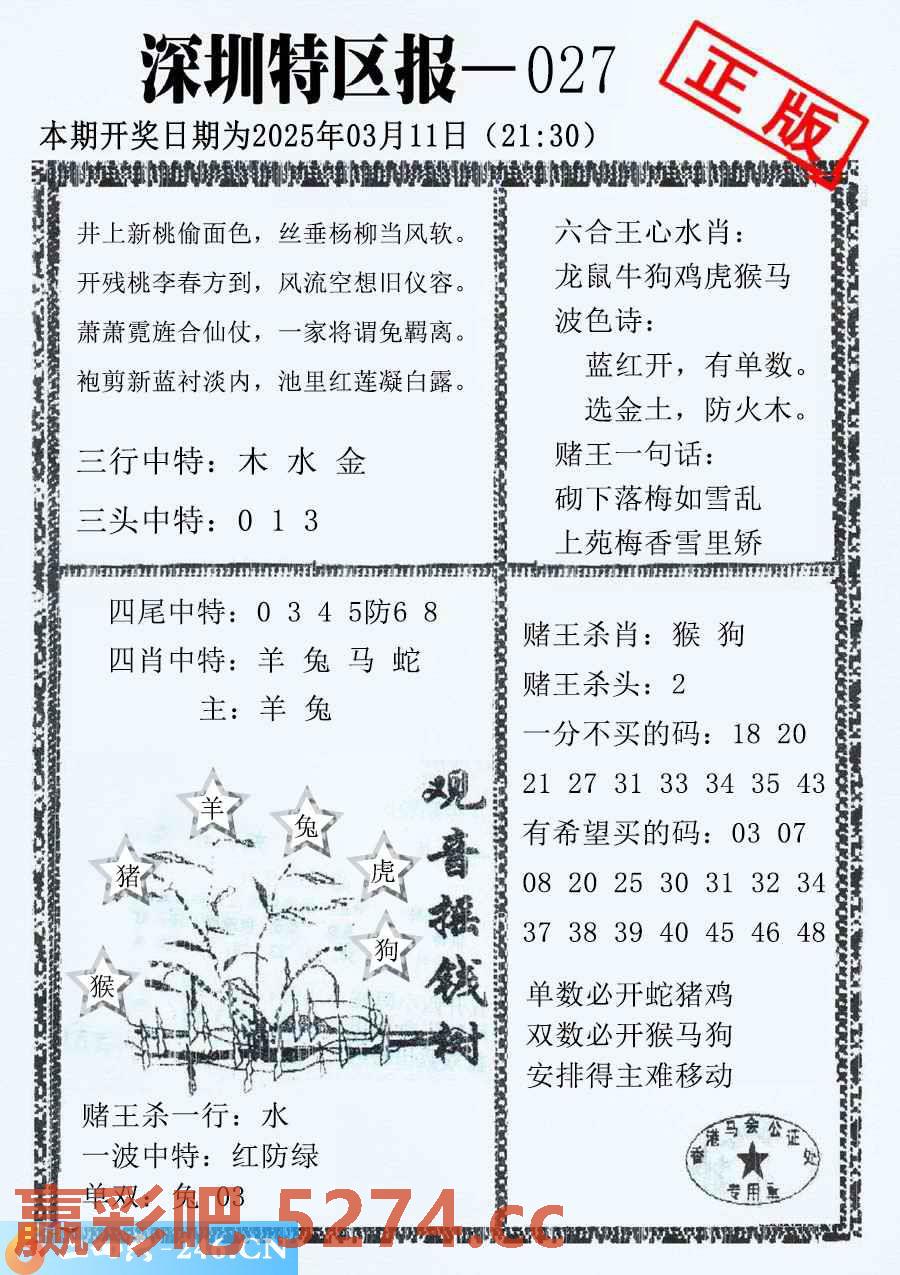 深圳特区报—027
正版
本期开奖日期为2025年03月11日（21:30）
井上新桃偷面色，丝垂杨柳当风软。
开残桃李春方到，风流空想旧仪容。
萧萧霓旌合仙仗，一家将谓免羁离。
袍剪新蓝衬淡内，池里红莲凝白露。
三行中特：木 水 金
三头中特：0 1 3
六合王心水肖：
龙鼠牛狗鸡虎猴马
波色诗：
蓝红开，有单数。
选金土，防火木。
赌王一句话：
砌下落梅如雪乱
上苑梅香雪里矫
四尾中特：0 3 4 5防6 8
四肖中特：羊 兔 马 蛇
主：羊 兔
羊
兔
猪
虎
狗
猴
观音摇钱树
赌王杀一行：水
一波中特：红防绿
单双：兔 03
赌王杀肖：猴 狗
赌王杀头：2
一分不买的码：18 20
21 27 31 33 34 35 43
有希望买的码：03 07
08 20 25 30 31 32 34
37 38 39 40 45 46 48
单数必开蛇猪鸡
双数必开猴马狗
安排得主难移动
香港马会公证处
专用章
赢彩吧 5274.cc
-246.CN